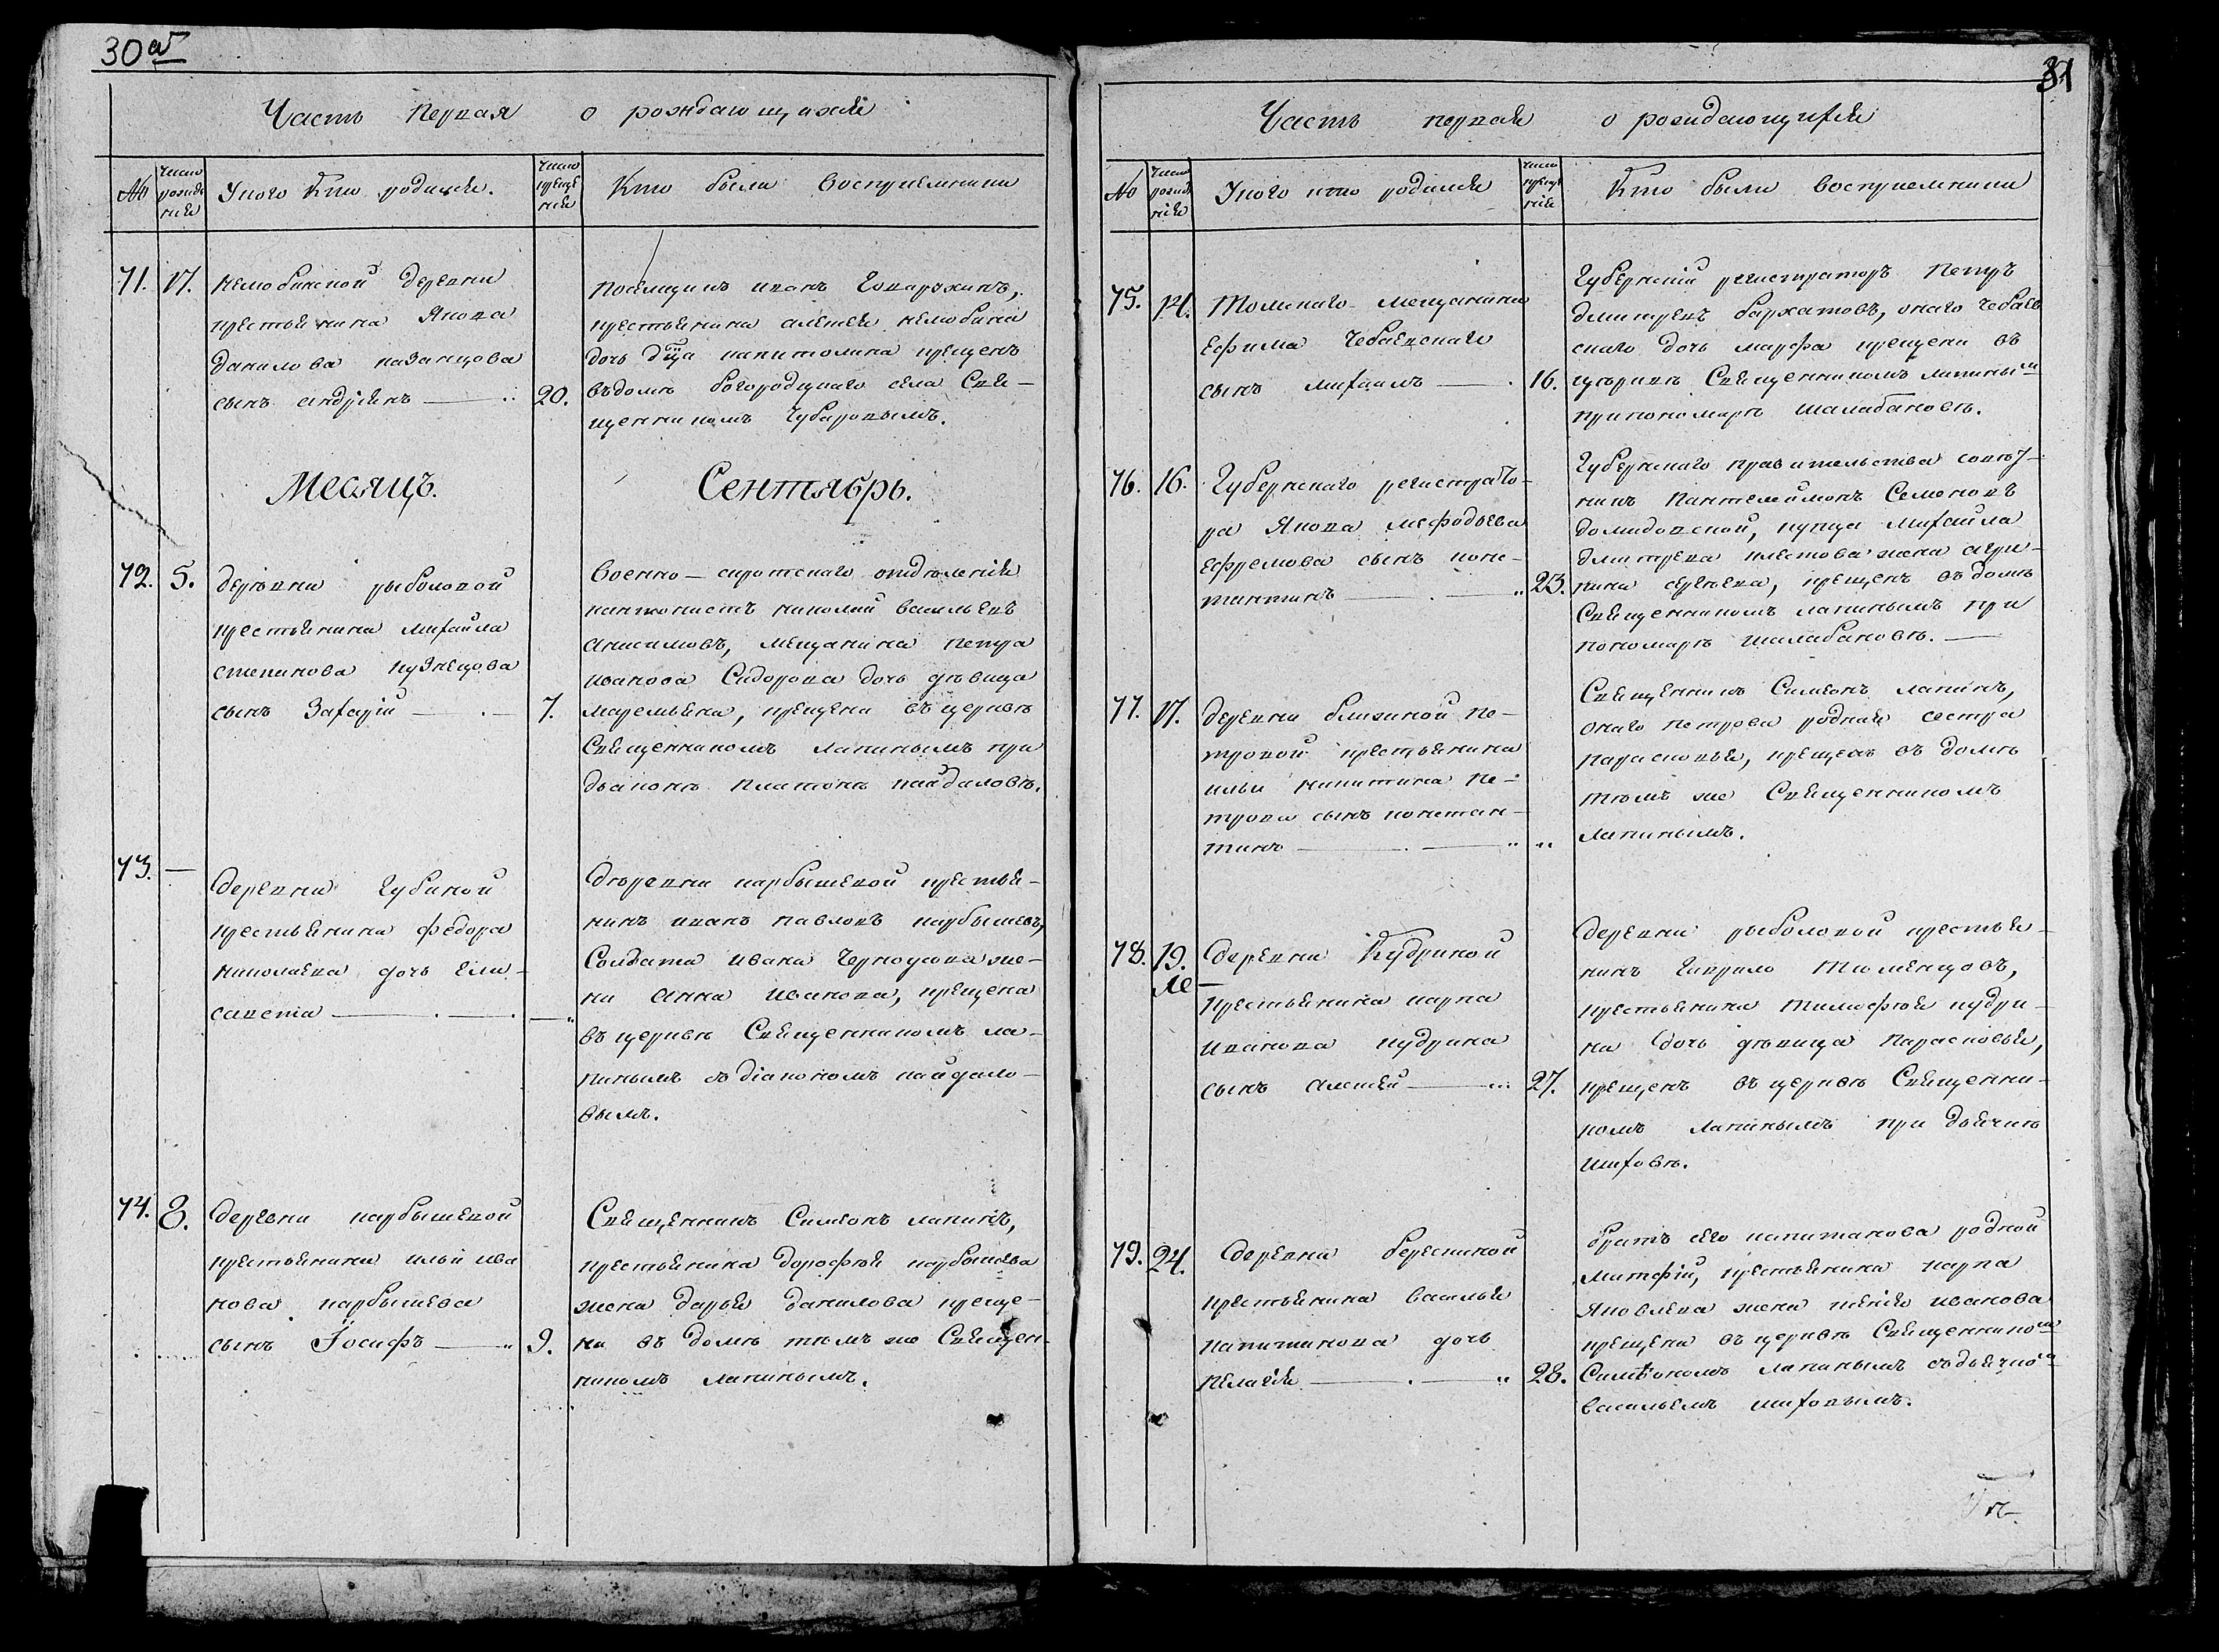 30об
Часть Первая о рождающихся
№
Число рожде
нія
У кого Кто родился.
Число
креще
нія
Кто были Восприемники
71. 17. Келобинской деревни
крестьянина Якова
данилова казанцова
сынъ андреянъ 20.
посельщикъ иванъ
крестьянина алексея келобина
дочь дѣца капитолина крещенъ
въ домѣ богородцкаго села Свя-
щенникомъ Чубаровымъ.
Месяцъ. Сентябрь.
72. 5. деревни рыболовой
крестьянина михаила
степанова кузнецова
сынъ Захарій 7.
Военно-сиротскаго отдѣленія
кантонистъ николай васильевъ
анисимовъ, мещанина петра
иванова Сидорова дочь дѣвица
маремьяна, крещены въ церквѣ
Священникомъ лапинымъ при
дьяконѣ платонѣ кайдаловѣ.
73. — деревни губиной
крестьянина федора
николаева дочь ели-
савета —
деревни карбышевой крестья-
нинъ иванъ павловъ карбышевъ,
Солдата ивана же-
на анна иванова, крещена
въ церквѣ Священникомъ ла-
пинымъ съ діакономъ кайдало-
вымъ.
74. 8. деревни карбышевой
крестьянина ильи ива
нова карбышева
сынъ Іосифъ 9.
Священникъ Симеонъ лапинъ,
крестьянина дорофея карбышева
жена дарья данилова креще-
ны въ домѣ тѣмъ же Священ-
никомъ лапинымъ.
31
Часть первая о рождающихся
№
Число
рожде
нія
У кого кто родился
Число
креще
нія
Кто были восприемники
75. 14. Томскаго мещанина
ефима Чебаевскаго
сынъ михаилъ 16.
Губернскій регистраторъ петръ
дмитревъ бархатовъ, онаго чебаев
скаго дочь марфа крещены въ
церквѣ Священникомъ лапинымъ
при пономарѣ шалабановѣ.
76. 16. Губернскаго регистрато-
ра Якова мефодьева
ефремова сынъ конс-
тантинъ 23.
Губернскаго правительства совѣт-
никъ Пантелеймонъ Семеновъ
домидовской, купца михаила
дмитрева жена агри-
пина крещенъ въ домѣ
Священникомъ лапинымъ при
пономарѣ шалабановѣ.
77. 17. деревни близкой пе-
тровой крестьянина
ильи никитина пе-
трова сынъ констан-
тинъ
Священникъ Симеонъ лапинъ,
онаго петрова родная сестра
парасковья, крещенъ въ домѣ
тѣмъ же Священникомъ
лапинымъ.
78. 19. Деревни Кудриной
крестьянина карпа
иванова кудрина
сынъ алексей 27.
деревни рыболовой крестья-
нинъ гаврило тюменцовъ,
крестьянина тимофея кудри-
на дочь дѣвица Парасковья,
крещенъ въ церквѣ Священни-
комъ лапинымъ при дьячкѣ
шиховѣ.
79. 24. деревни берескиной
крестьянина василья
капитанова дочь
пелагея 28.
братъ его капитанова родной
матфій, крестьянина карпа
Яковлева жена ксенія иванова
крещена въ церквѣ Священникомъ
Симеономъ лапинымъ съ дьячкомъ
васильемъ шиховымъ.